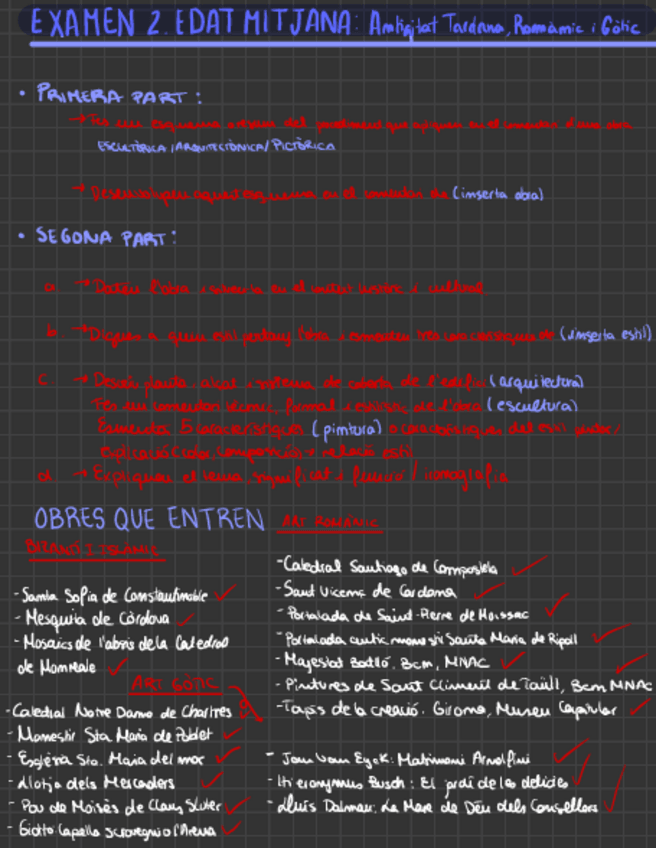 EXAMEN 2. EDAT MITJANA: Antiguitat Tardana, Romànic i Gòtic
• PRIMERA PART:
→ Fes un esquema del procediment que apliques en el comentari d'una obra
ESCULTÒRICA / ARQUITECTÒNICA / PICTÒRICA
→ Desenvolupeu aquest esquema en el comentari de (inserta obra)
• SEGONA PART:
a. → Dateu l'obra i situeu-la en el context històric i cultural.
b → Digueu a quin estil pertany l'obra i esmenteu tres característiques de (inserta estil)
c. → Descriu planta, alçat i sistema de coberta de l'edifici (arquitectura)
Fes un comentari tècnic, formal i estilístic de l'obra (escultura)
Esmenteu 5 característiques (pintura) o característiques del estil pintor /
explicació color, composició i relació estil
d → Expliqueu el tema, significat i funció / iconografia
OBRES QUE ENTREN
BIZANTÍ I ISLÀMIC
- Santa Sofia de Constantinoble ✓
- Mesquita de Còrdova ✓
- Mosaics de l'absis de la Catedral
de Monreale ✓
ART GÒTIC
- Catedral Notre Dame de Chartres
- Monestir Sta. Maria de Poblet ✓
- Església Sta. Maria del mar ✓
- Llotja dels Mercaders ✓
- Pou de Moisès de Claus Sluter ✓
- Giotto Capella Scrovegni o l'Arena ✓
ART ROMÀNIC
- Catedral Santiago de Compostela ✓
- Sant Vicenç de Cardona ✓
- Portalada de Saint-Pierre de Moissac ✓
- Portalada antic monestir Santa Maria de Ripoll ✓
- Majestat Batlló. Bcn, MNAC ✓
- Pintures de Sant Climent de Taüll, Bcn MNAC ✓
- Tapís de la creació. Girona, Museu Capitular ✓
- Jan Van Eyck: Matrimoni Arnolfini ✓
- Hieronymus Bosch: El jardí de les delícies ✓
- Lluís Dalmau: La Mare de Déu dels Consellers ✓